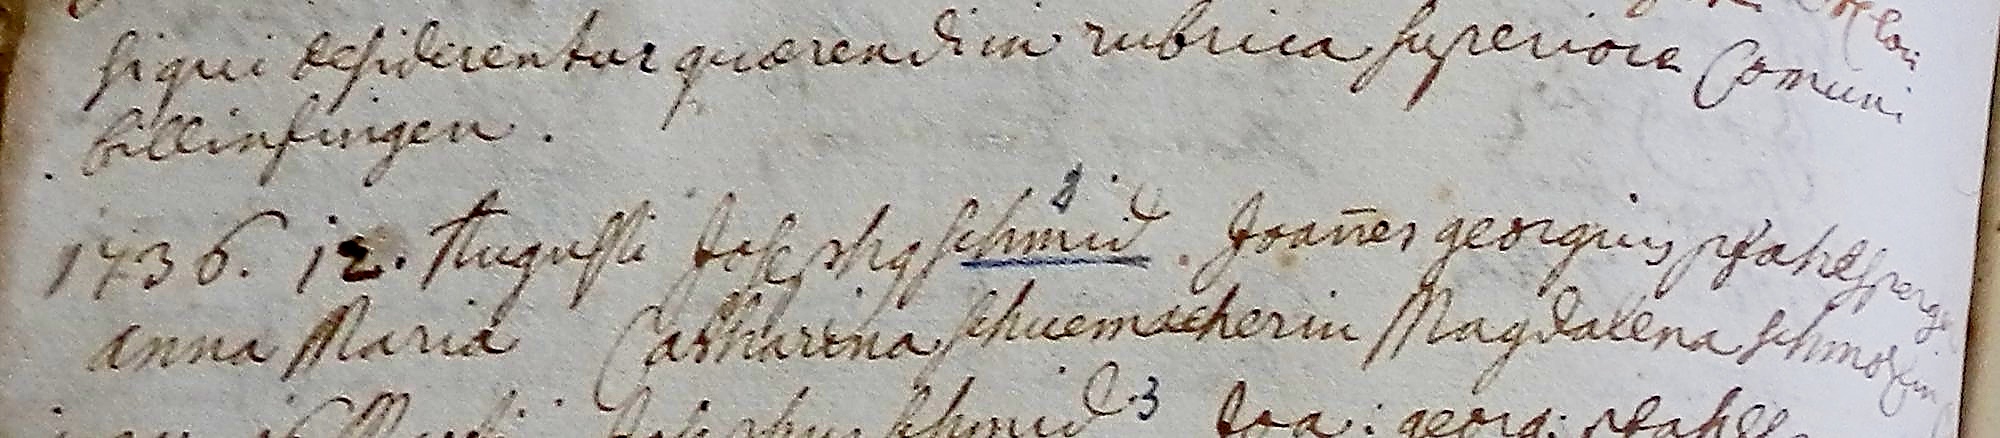 siqui desiderentur quaerendi in rubrica superiore Comuni
billinfingen.
1736. 12. Augusti Josephg schmid. Joañes georgius pfahlsperger
Anna Maria Catharina schuemacherin Magdalena
Josephus schmid 3 Joa: georg: